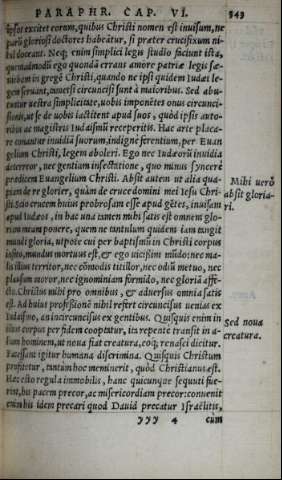 PARAPHR. CAP. VI. 343
ipsos excitet eorum, quibus Christi nomen est inuisum, ne
parū gloriosi doctores habeātur, si præter crucifixum ni-
hil doceant. Neq; enim simplici legis studio faciunt ista,
quemadmodū ego quondā errans amore patriæ legis sæ-
uiebam in gregē Christi, quando ne ipsi quidem Iudæi le-
gem seruant, tametsi circuncisi sunt à maioribus. Sed abu-
tuntur uestra simplicitate, uobis imponētes onus circunci-
sionis, ut se de uobis iactitent apud suos, quòd ipsis auto-
ribus ac magistris Iudaismū receperitis. Hac arte placa-
re conantur inuidiā suorum, indigne ferentium, per Euan
gelium Christi, legem aboleri. Ego nec Iudæorū inuidia
deterreor, nec gentium insectatione, quo minus syncerè
prædicem Euangelium Christi. Absit autem ut alia qua-
piam de re glorier, quàm de cruce domini mei Iesu Chri-
sti. Scio crucem huius probrosam esse apud gētes, inuisam
apud Iudæos, in hac una tamen mihi satis est omnem glo-
riam meam ponere, quem ne tantulum quidem iam tangit
mundi gloria, utpote cui per baptismū in Christi corpus
insito, mundus mortuus est, & ego uicissim mūdo: nec ma-
lis illius territor, nec cōmodis titillor, nec odiū metuo, nec
plausum moror, nec ignominiam formido, nec gloriā affe-
cto. Christus mihi pro omnibus, & aduersus omnia satis
est. Ad huius professionē nihil refert circuncisus uenias ex
Iudaismo, an incircuncisus ex gentibus. Quisquis enim in
illius corpus per fidem cooptatur, is repente transit in a-
lium hominem, ut noua fiat creatura, eoq; renasci dicitur.
Facessant igitur humana discrimina. Quisquis Christum
profitetur, tantum hoc meminerit, quòd Christianus est.
Hæc esto regula immobilis, hanc quicunque sequuti fue-
rint, his pacem precor, ac misericordiam precor: conuenit
enim his idem precari quod Dauid precatur Israëlitis,
yyy 4 cùm
Mihi uerò
absit gloria-
ri.
Sed noua
creatura.